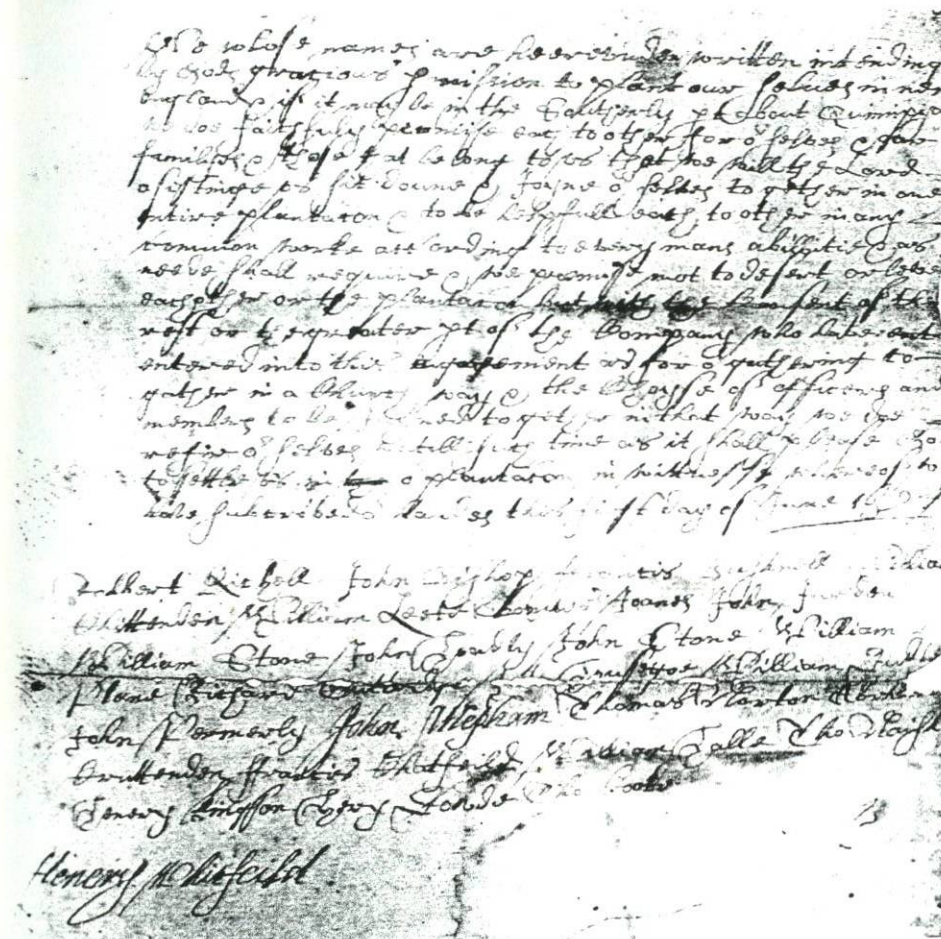 We whose names are heereunder written intending
by Gods gratious pmission to plant our selves in new
England & if it may be in the Southerly pt about Quinnipia
we doe faithfully promise each to other for o selves & our
families & those that belong to us that we will the Lord
assistinge us sit downe & Joyne o selves to gether in one
entire plantaton & to be helpfull each to other in any
Common worke according to every mans abillitie & as
neede shall require & we promise not to desert or leave
each other or the plantaton but with the Consent of the
rest or the greater pt of the Company who have
entered into this agreement as for o gathering to
gether in a Church way & the Choyse of officers and
members to be Joyned to gether in that way we doe
refer o selves untill such time as it shall please God
to settle us in o plantaton in wittnesse whereof we
have subscribed o handes this first day of June
Robert Kitchell John Bishop Francis Bushnell
Chittenden William Leete Thomas Joanes John Jurden
William Stone John Hoadly John Stone William
Plane Richard Gutteridge William
John Permerly John Mepham Thomas Norton
Cruttenden Francis Chatfeild William Halle Tho Naish
Henery Kingson Henry Dowde Tho Cooke
Henery Whitfeild